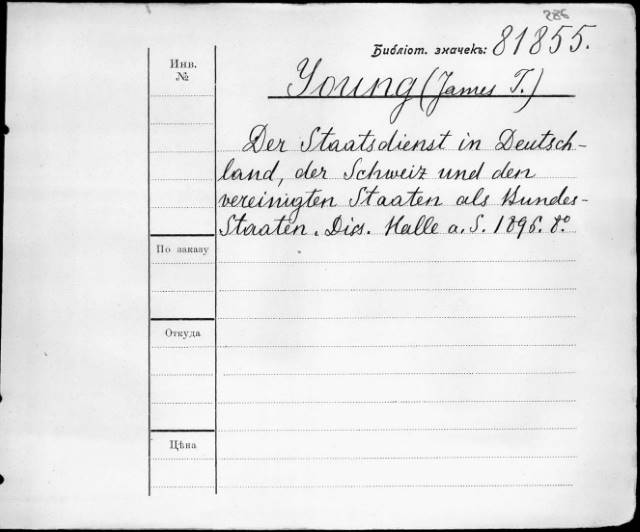 286
Библіот. значекъ: 81855.
Инв.
№
Young (James T.)
Der Staatsdienst in Deutsch-
land, der Schweiz und den
vereinigten Staaten als Bundes-
Staaten. Diss. Halle a. S. 1896. 8º
По заказу
Откуда
Цѣна